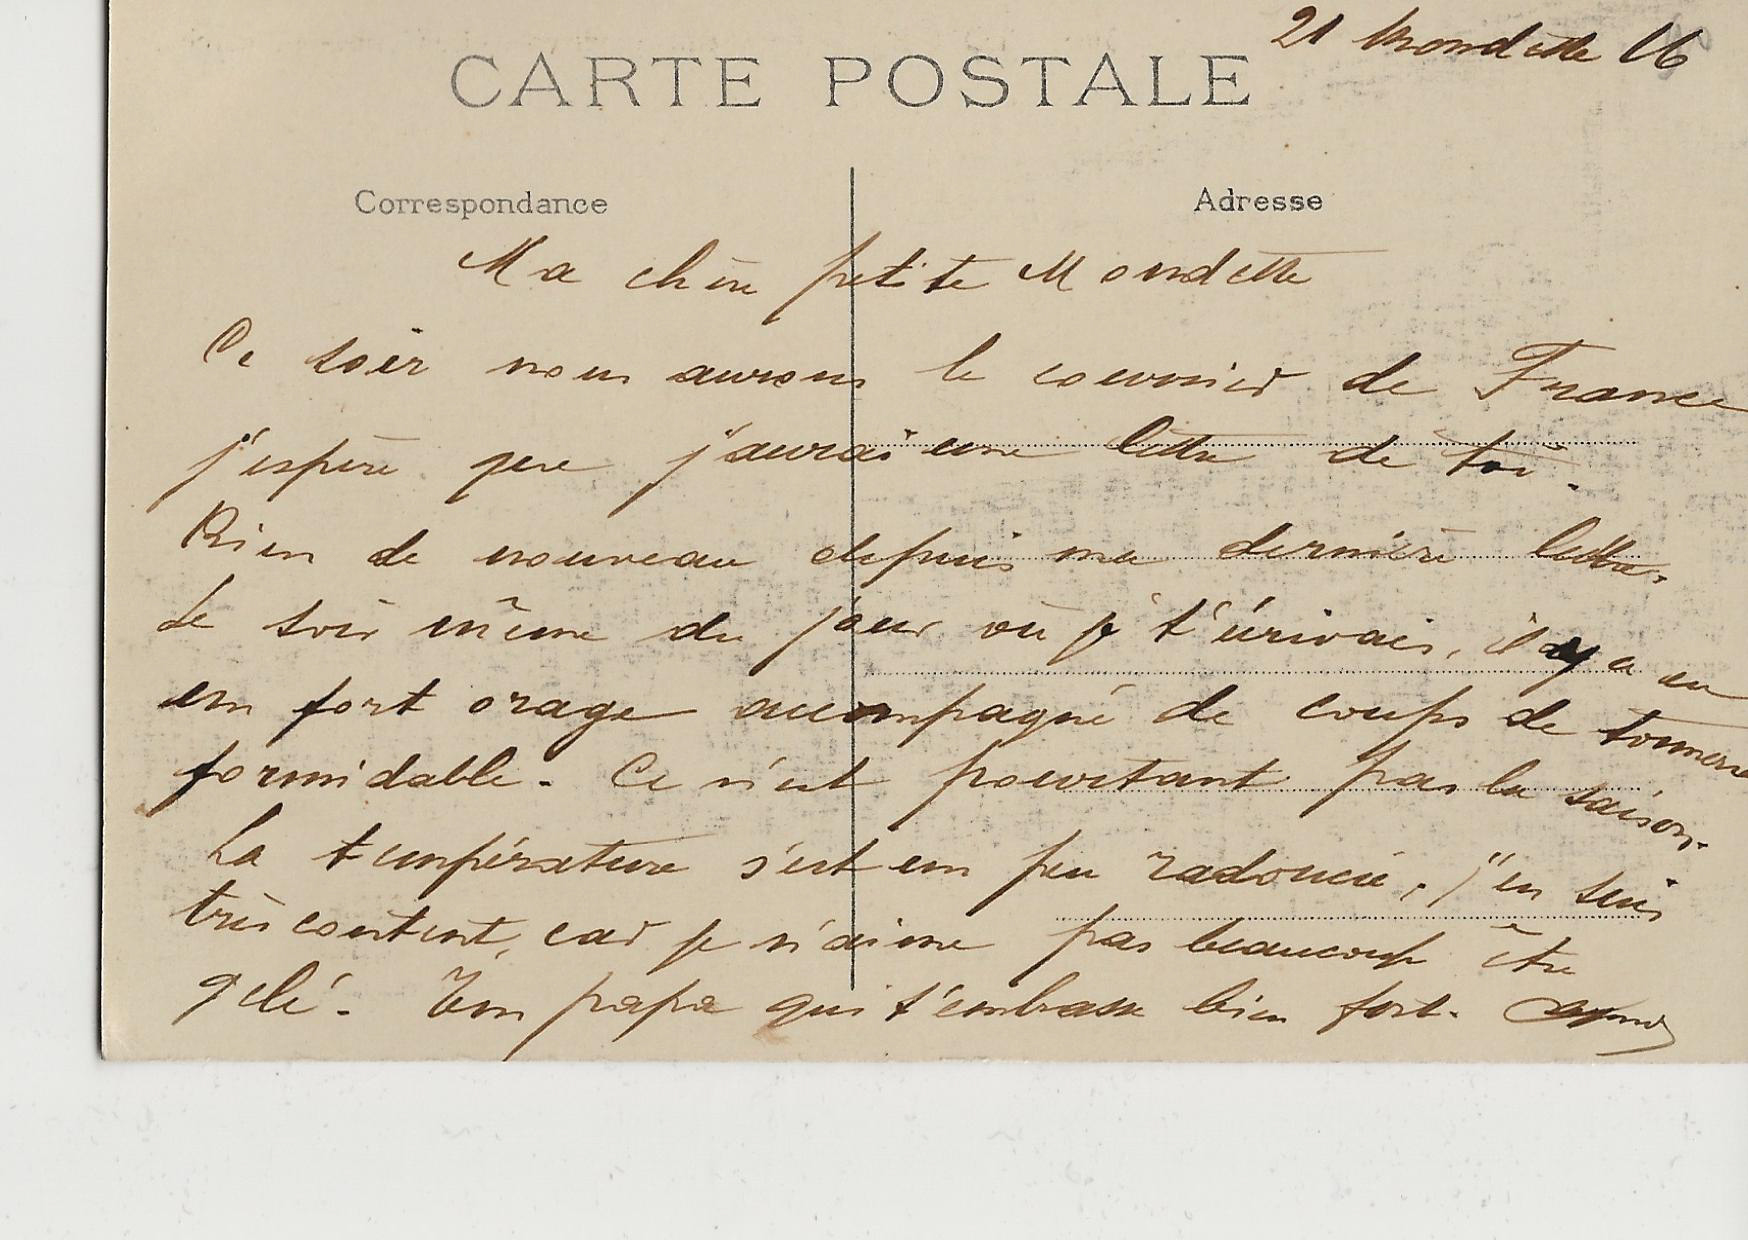 21 Mondette 16
CARTE POSTALE
Correspondance
Adresse
Ma chère petite Mondette
Ce soir nous aurons le courrier de France
j'espère que j'aurai une lettre de toi.
Rien de nouveau depuis ma dernière lettre.
Le soir même du jour où je t'écrivais, il y a eu
un fort orage accompagné de coups de tonnerre
formidable. Ce n'est pourtant pas la saison.
La température s'est un peu radoucie, j'en suis
très content, car je n'aime pas beaucoup être
gelé. Ton papa qui t'embrasse bien fort.